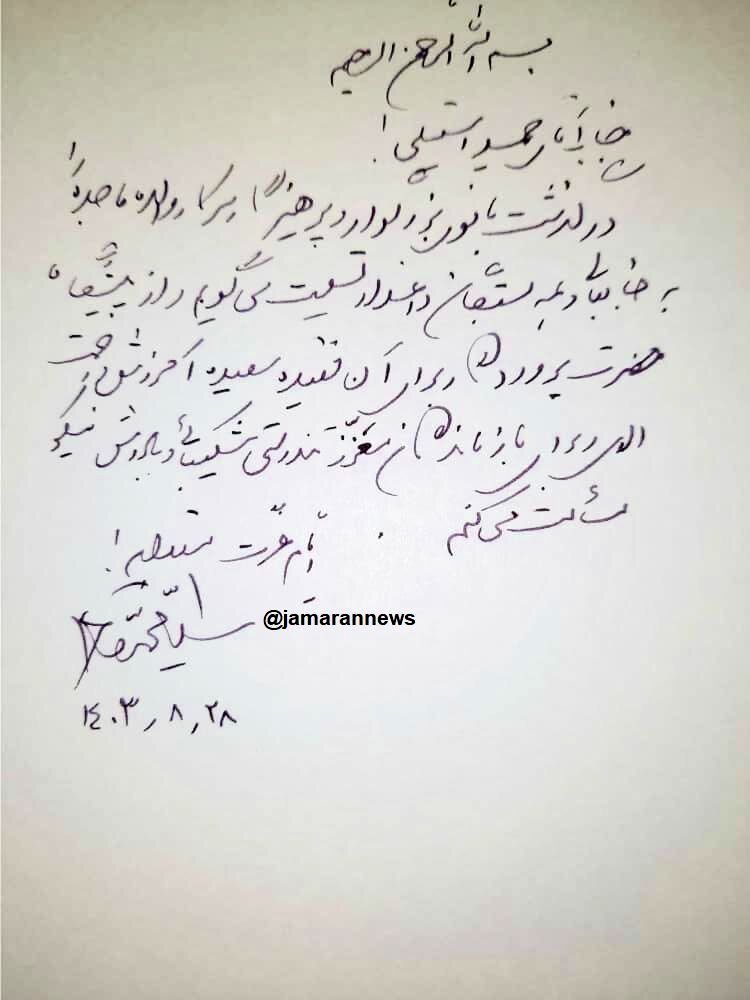 بسم الله الرحمن الرحیم
جناب آقای حمید استیلی!
درگذشت بانوی بزرگوار و پرهیزگار سرکار والده ماجده را
به جنابعالی و همه بستگان داغدار تسلیت می گویم و از پیشگاه
حضرت پروردگار برای آن فقیده سعیده آمرزش و رحمت
الهی و برای بازماندگان معزز تندرستی شکیبائی و پاداش نیکو
مسألت می کنم
ایام عزت مستدام!
سید محمد خاتمی
@jamarannews
۱۴۰۳٫۸٫۲۸